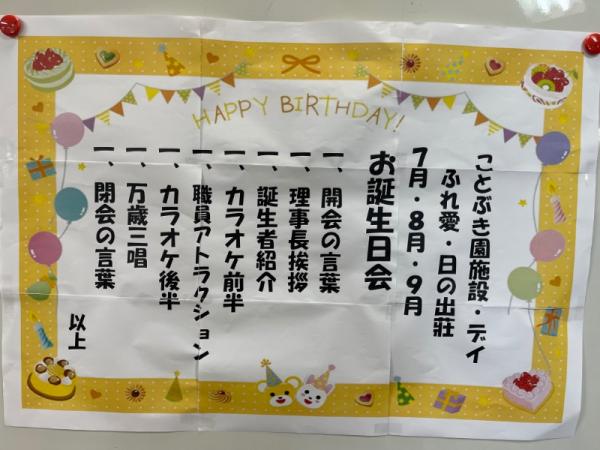 HAPPY BIRTHDAY!
ことぶき園施設・デイ
ふれ愛・日の出荘
7月・8月・9月
お誕生日会
一、開会の言葉
一、理事長挨拶
一、誕生者紹介
一、カラオケ前半
一、職員アトラクション
一、カラオケ後半
一、万歳三唱
一、閉会の言葉
以上